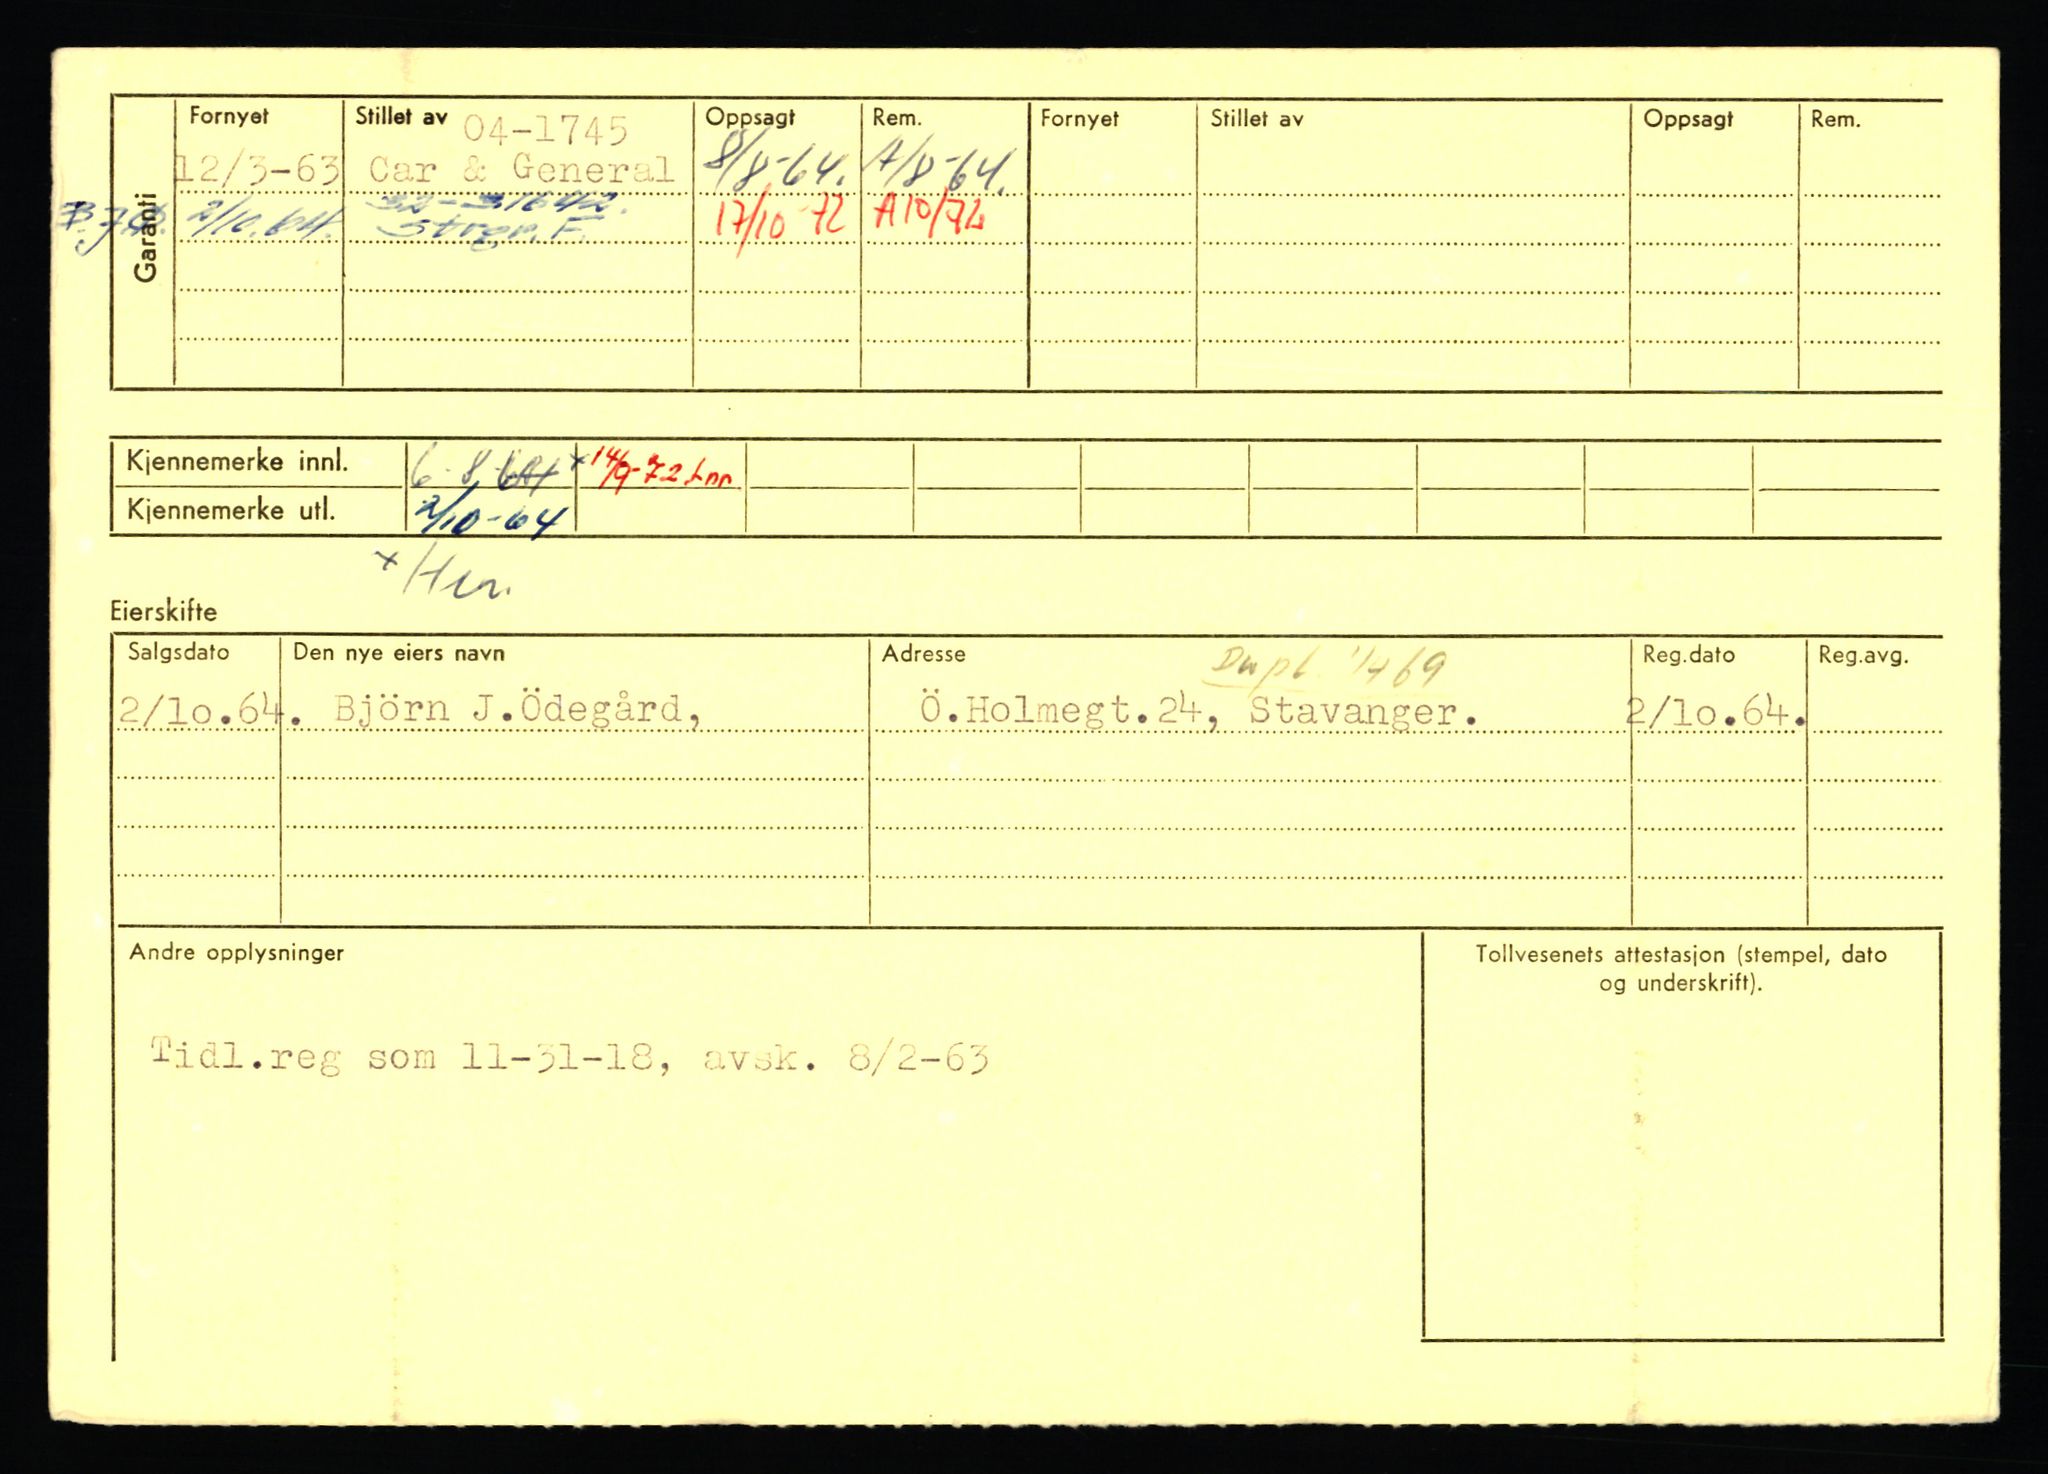 Garanti
Fornyet Stillet av Oppsagt Rem. Fornyet Stillet av Oppsagt Rem.
04-1745
12/3-63 Car & General 8/8-64. A/8-64.
2/10.64. 17/10-72 A10/72
Kjennemerke innl. 6-8-64 x 14/9-72
Kjennemerke utl. 2/10-64
x
Eierskifte
Salgsdato Den nye eiers navn Adresse Dupl. 1/4 69 Reg.dato Reg.avg.
2/1o.64. Björn J.Ödegård, Ö.Holmegt.24, Stavanger. 2/1o.64.
Andre opplysninger
Tollvesenets attestasjon (stempel, dato
og underskrift).
Tidl.reg som 11-31-18, avsk. 8/2-63